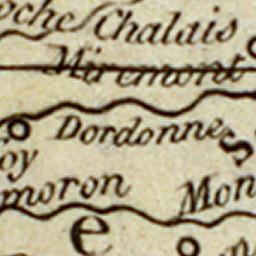 oche Chalais
Miremont
Dordonne
s
oy
moron Mon
e